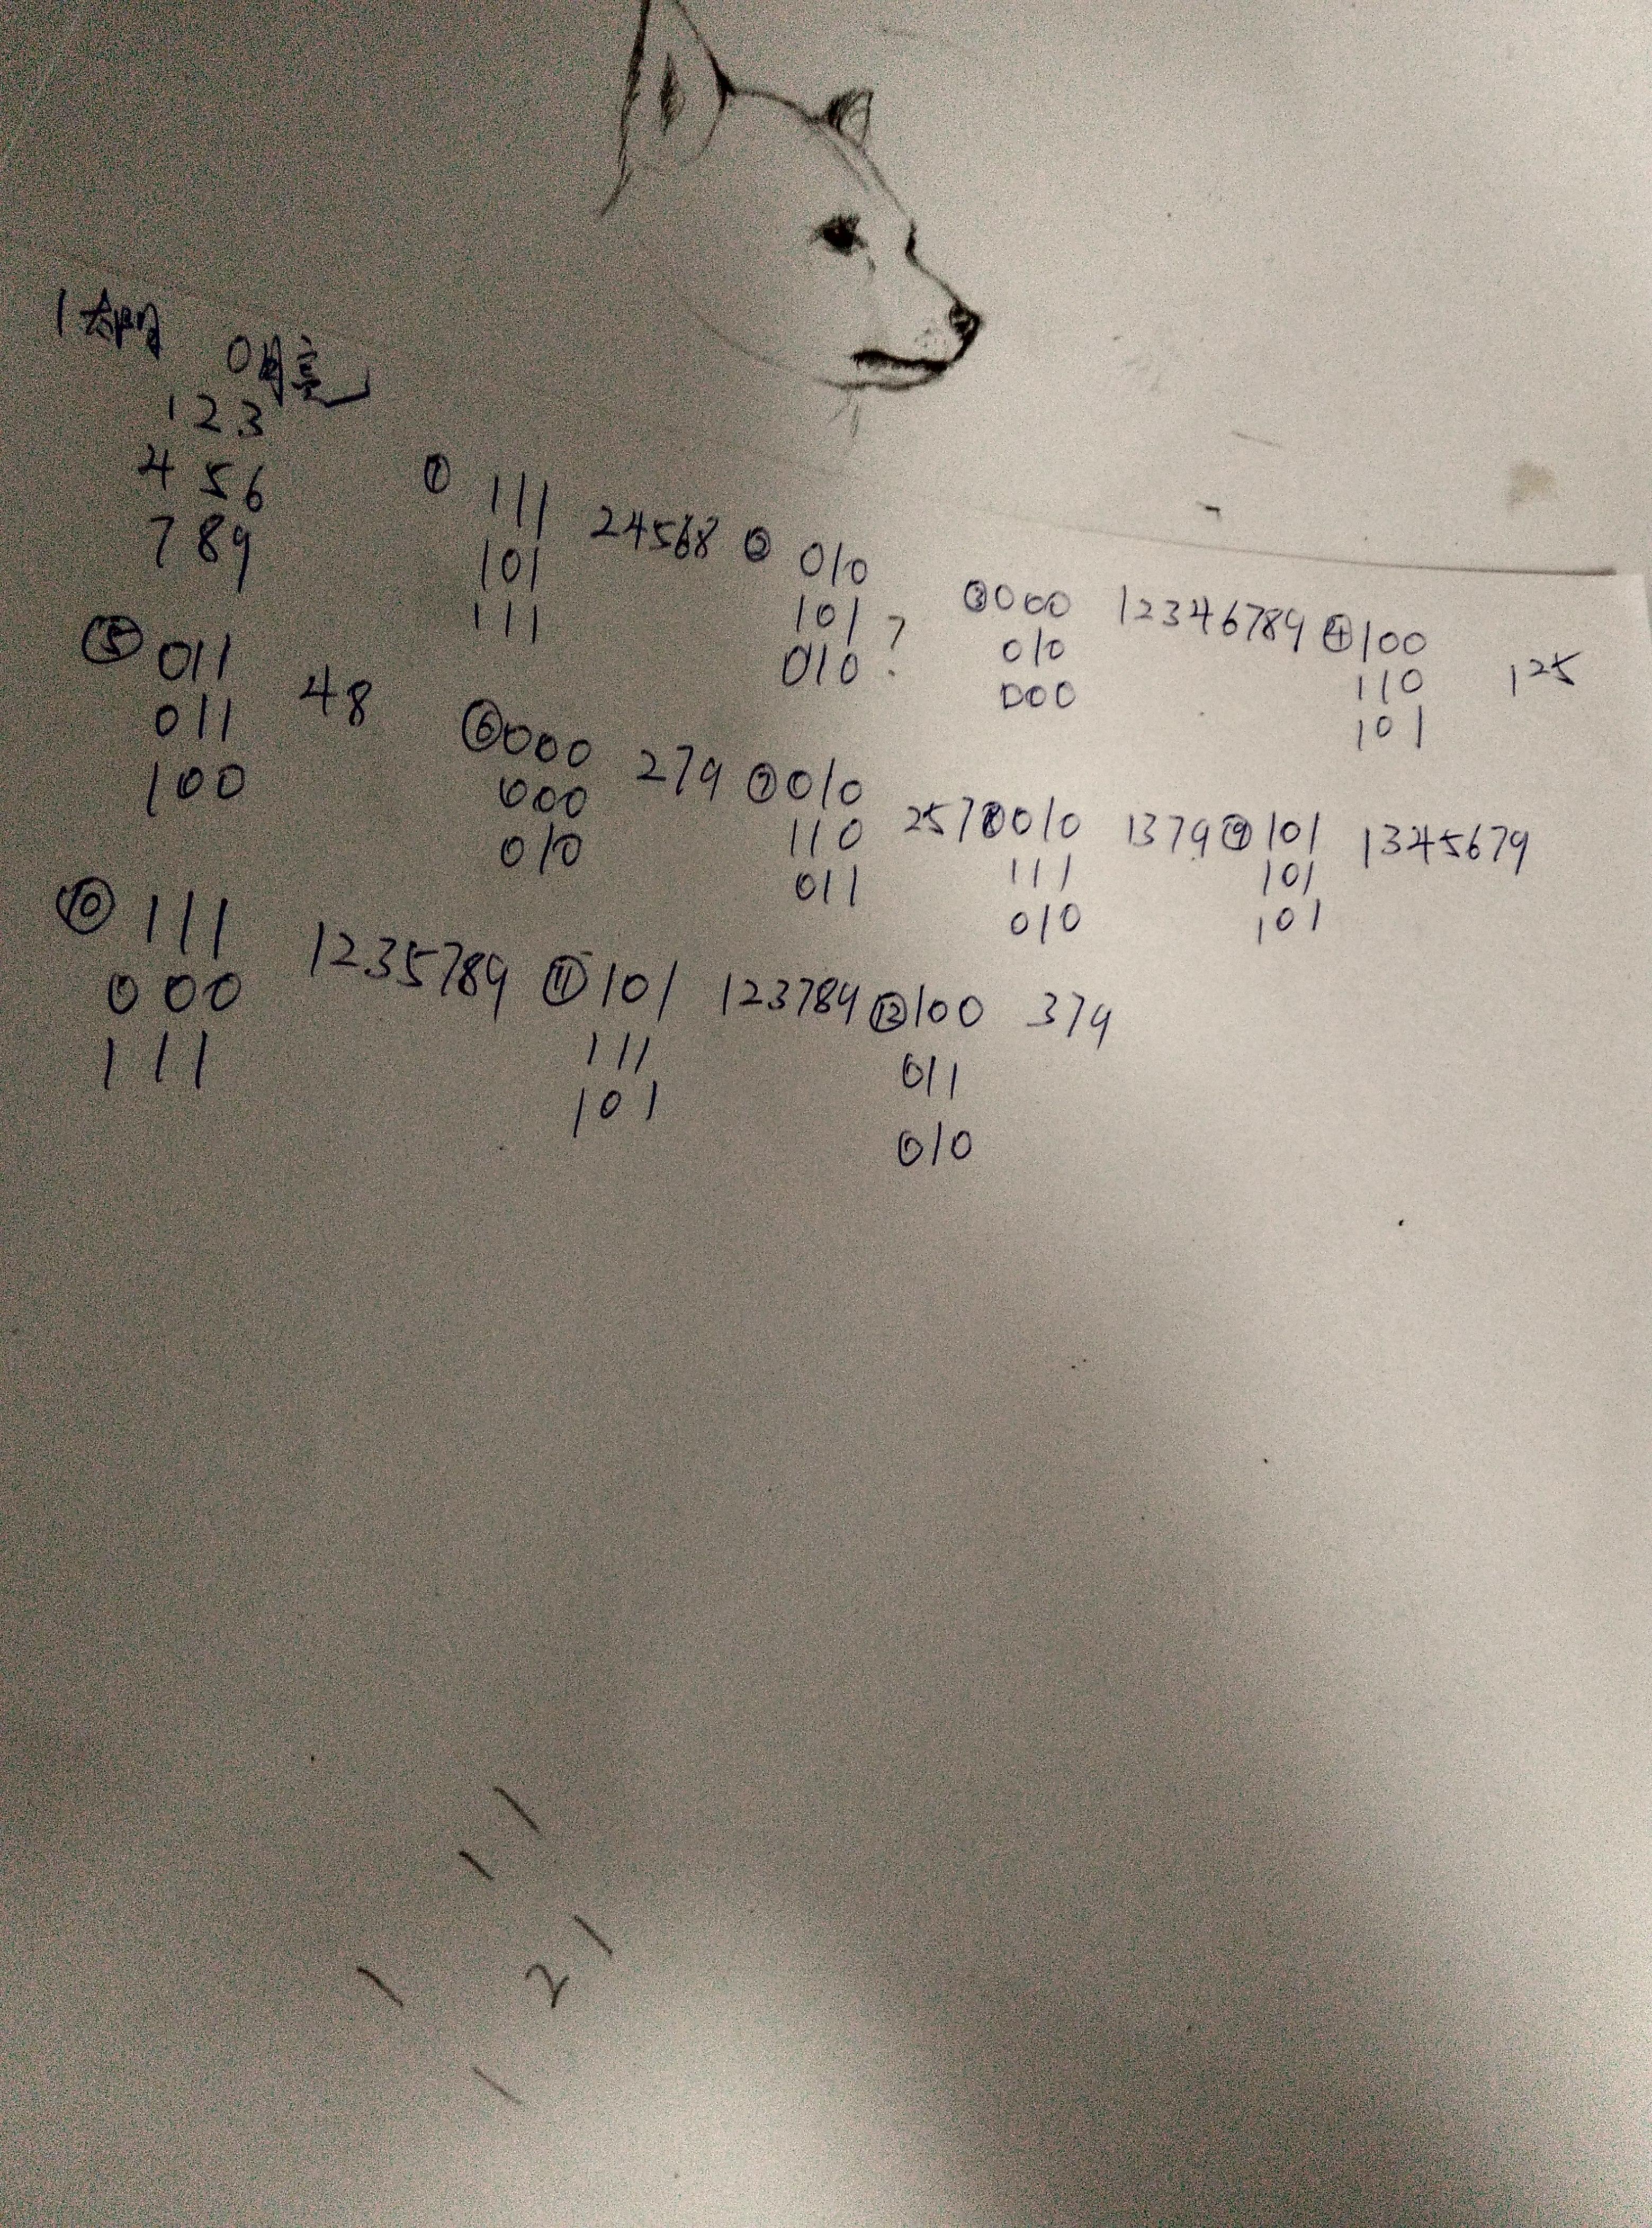 1太阳 0月亮
123
456
789
① 111 24568 ② 010
101
111
101 ?
010
③000 12346789 ④100
010
000
110 125
101
⑤ 011 48
011
100
⑥000 279 ⑦010
000
010
110 257⑧010 1379⑨101 1345679
011
111
010
101
101
⑩ 111 1235789 ⑪101 123789⑫100 379
000
111
111
101
011
010
1
1
1
1 2
1